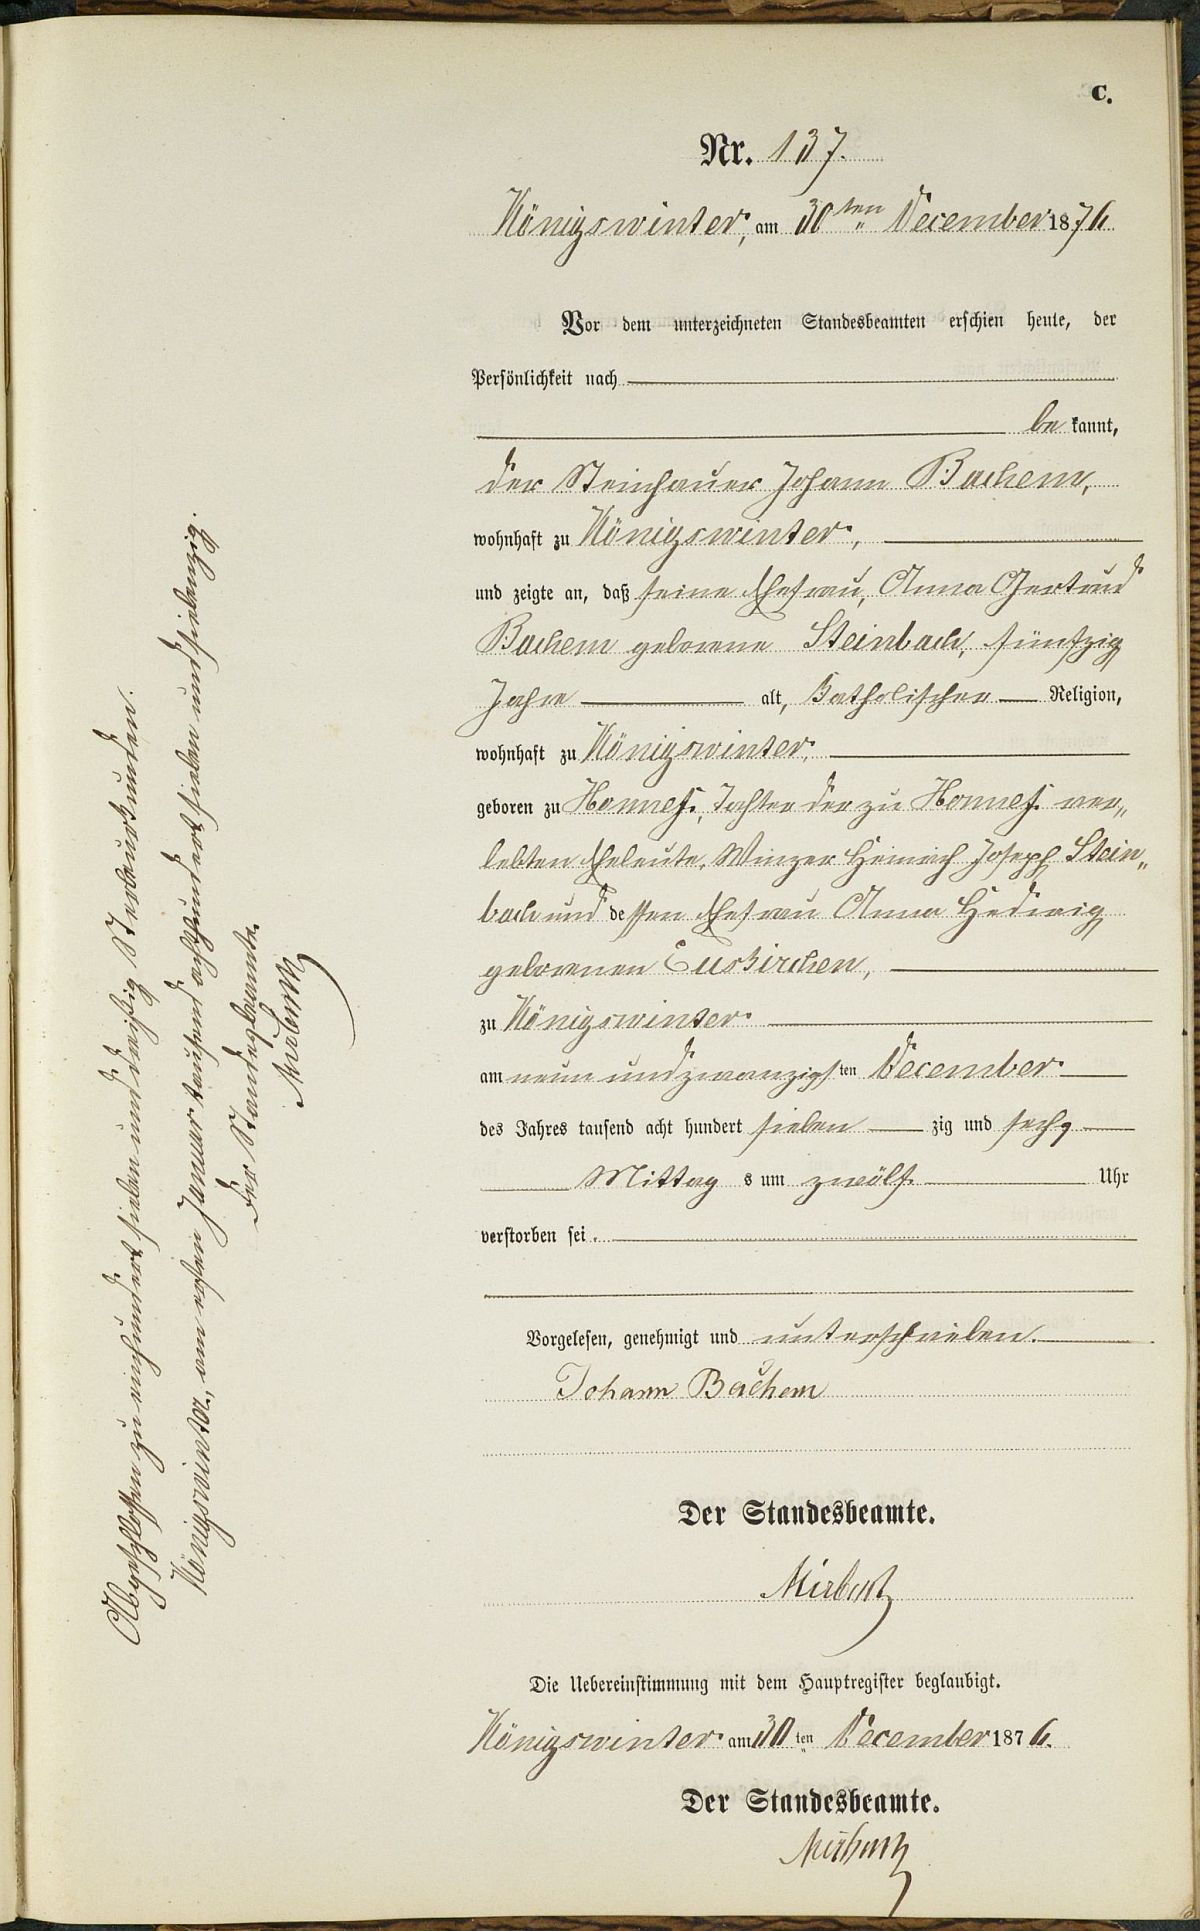 C.
Nr. 137.
Königswinter, am 30ten December 1876
Vor dem unterzeichneten Standesbeamten erschien heute, der
Persönlichkeit nach
be kannt,
der Steinhauer Johann Bachem,
wohnhaft zu Königswinter,
und zeigte an, daß seine Ehefrau, Anna Gertrud
Bachem geborene Steinbach, fünfzig
Jahre alt, katholischer Religion,
wohnhaft zu Königswinter,
geboren zu Honnef, Tochter der zu Honnef ver„
lebten Eheleute, Winzer Heinrich Joseph Stein„
bach und dessen Ehefrau Anna Hedwig
geborenen Euskirchen,
zu Königswinter
am neun und zwanzigsten December
des Jahres tausend acht hundert sieben zig und sechs
Mittag s um zwölf Uhr
verstorben sei.
Vorgelesen, genehmigt und unterschrieben.
Johann Bachem
Der Standesbeamte.
Mirbach
Die Uebereinstimmung mit dem Hauptregister beglaubigt.
Königswinter am 30ten December 1876.
Der Standesbeamte.
Mirbach
Abgeschlossen zu einhundert sieben und dreißig Sterbeurkunden.
Königswinter, am ersten Januar tausend achthundert sieben und siebenzig.
Der Standesbeamte.
Mirbach